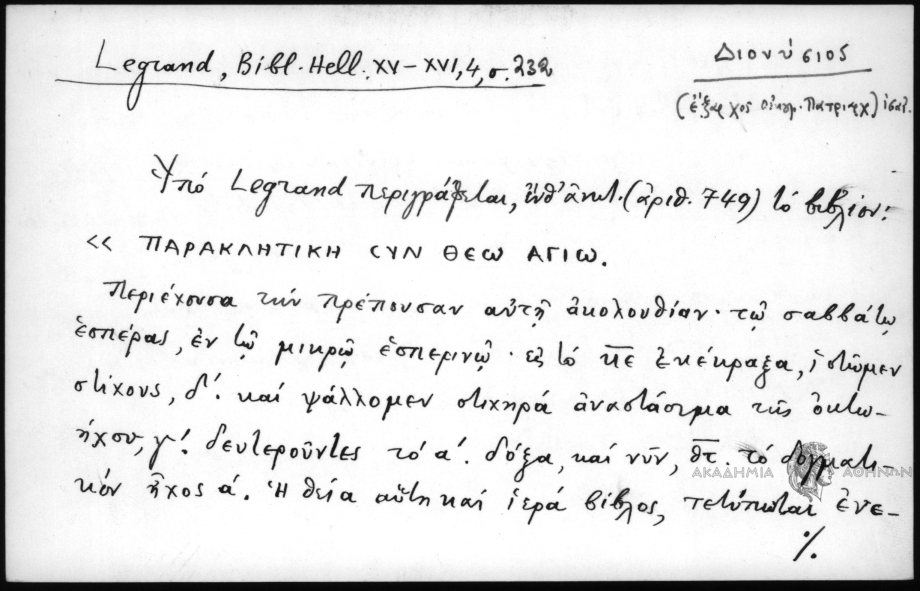 Legrand, Bibl. Hell. XV–XVI, 4, σ. 232
Διονύσιος
(ἔξαρχος οἰκουμ. Πατριαρχ)
Ὑπό Legrand περιγράφεται, (ἀριθ. 749) τό βιβλίον:
« ΠΑΡΑΚΛΗΤΙΚΗ CΥΝ ΘΕΩ ΑΓΙΩ.
Περιέχουσα τήν πρέπουσαν αὐτῇ ἀκολουθίαν· τῷ σαββάτῳ
ἑσπέρας, ἐν τῷ μικρῷ ἑσπερινῷ· εἰς τό κ̅ε̅ ἐκέκραξα, ἱστῶμεν
στίχους, δ´. καί ψάλλομεν στιχηρά ἀναστάσιμα τῆς ὀκτω-
ήχου, γ´. δευτεροῦντες τό α´. δόξα, καί νῦν, θ̅τ̅. τό δογματι-
κόν ἦχος α´. Ἡ θεία αὕτη καί ἱερά βίβλος, τετύπωται ἐνε-
ΑΚΑΔΗΜΙΑ ΑΘΗΝΩΝ
./.